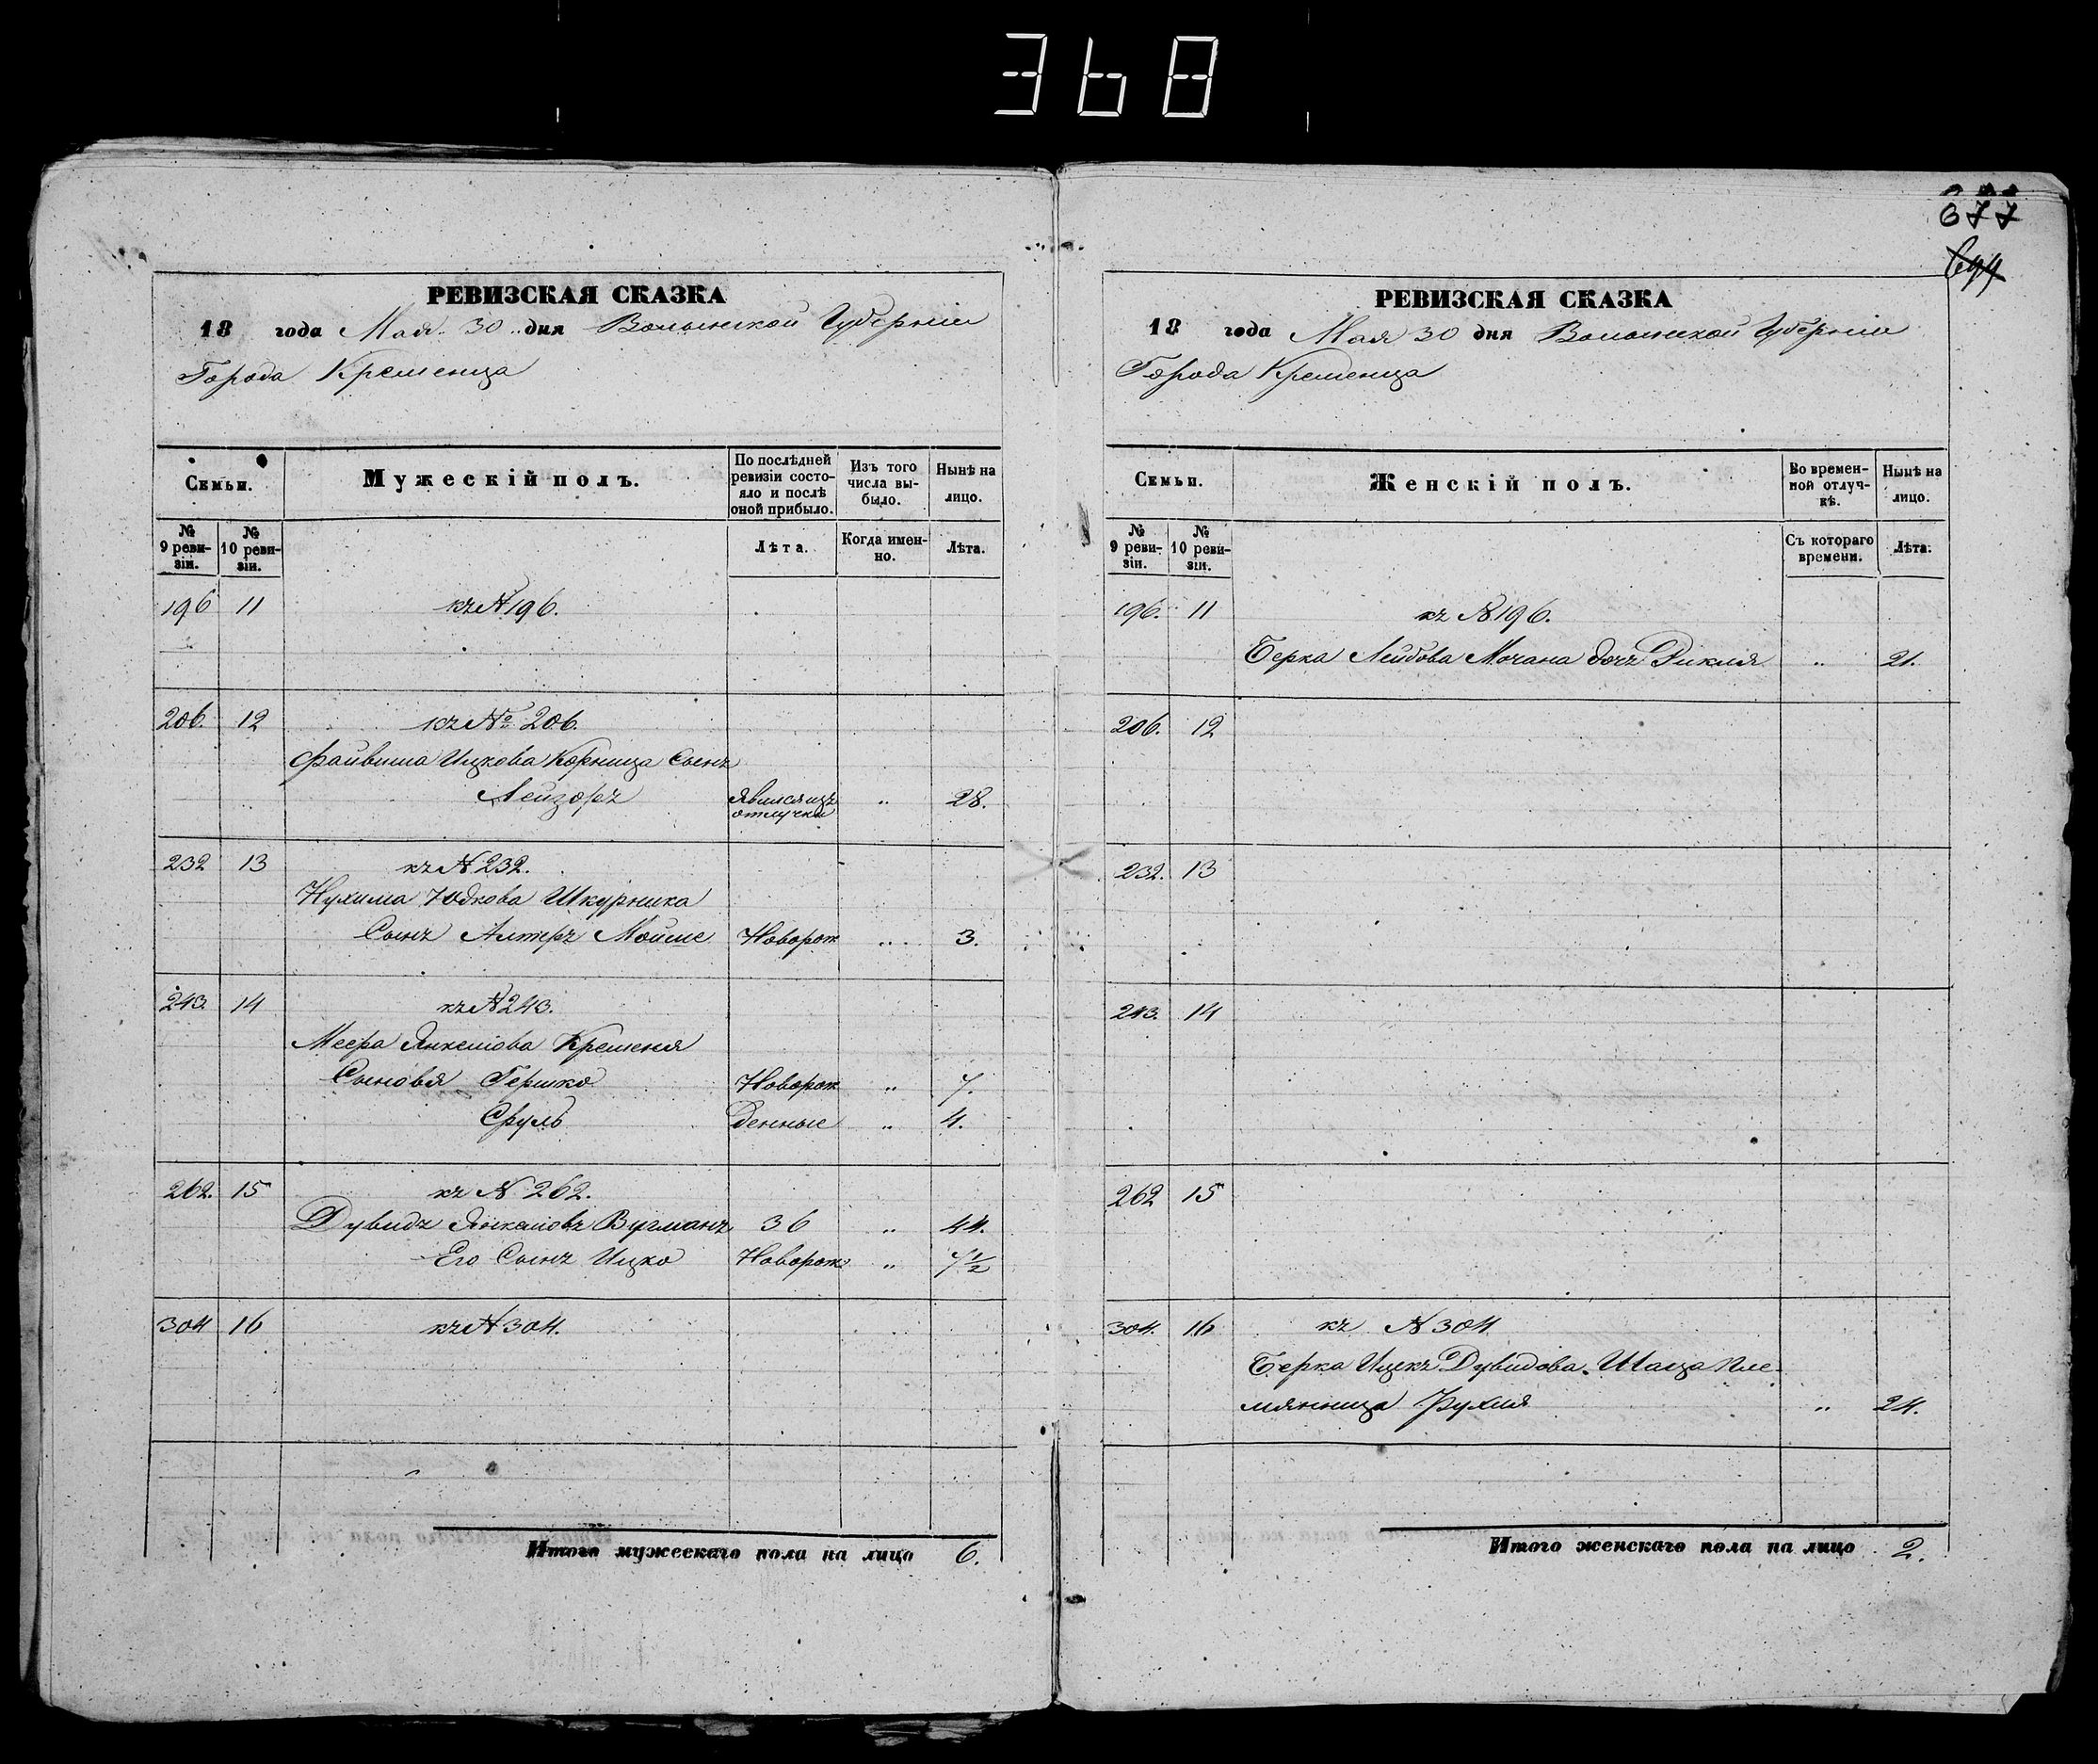 368
677
699
РЕВИЗСКАЯ СКАЗКА
18 года Мая 30 дня Волынской Губерніи
Города Кременца
Семьи.
Мужескій полъ.
По послѣдней ревизіи состояло и послѣ оной прибыло.
Изъ того числа выбыло.
Нынѣ на лицо.
№ 9 ревизіи.
№ 10 ревизіи.
Лѣта.
Когда именно.
Лѣта.
196 11 къ № 196.
206. 12 къ № 206.
Файвиша Ицкова Корница Сынъ
Лейзоръ явился изъ отлучки " 28.
232 13 къ № 232.
Нухима Юдкова Шкурника
Сынъ Алтеръ Мойше Новорож " 3.
243. 14 къ № 243.
Меера Янкелиова Кременя
Сыновья Гершко Новорож " 7.
Сруль денные " 4.
262. 15 къ № 262.
Дувидъ Янкелиовъ Вугманъ 36 " 44.
Его Сынъ Ицко Новорож " 7½
304 16 къ № 304.
Итого мужескаго пола на лицо 6.
РЕВИЗСКАЯ СКАЗКА
18 года Мая 30 дня Волынской Губерніи
Города Кременца
Семьи.
Женскій полъ.
Во временной отлучкѣ.
Нынѣ на лицо.
№ 9 ревизіи.
№ 10 ревизіи.
Съ котораго времени.
Лѣта.
196. 11 къ № 196.
Берка Лейбова Мочана дочь Рикля " 21.
206. 12
232. 13
243. 14
262 15
304. 16 къ № 304
Берка Ицекъ Дувидова Шаца пле-
мянница Рухля " 24.
Итого женскаго пола на лицо 2.